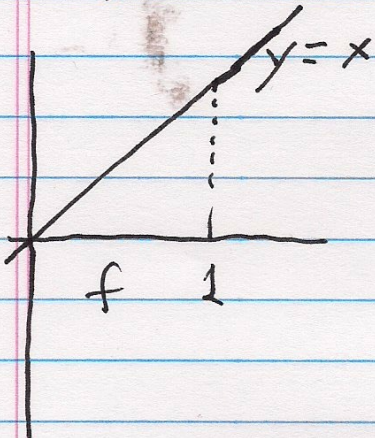 y = x
f 1